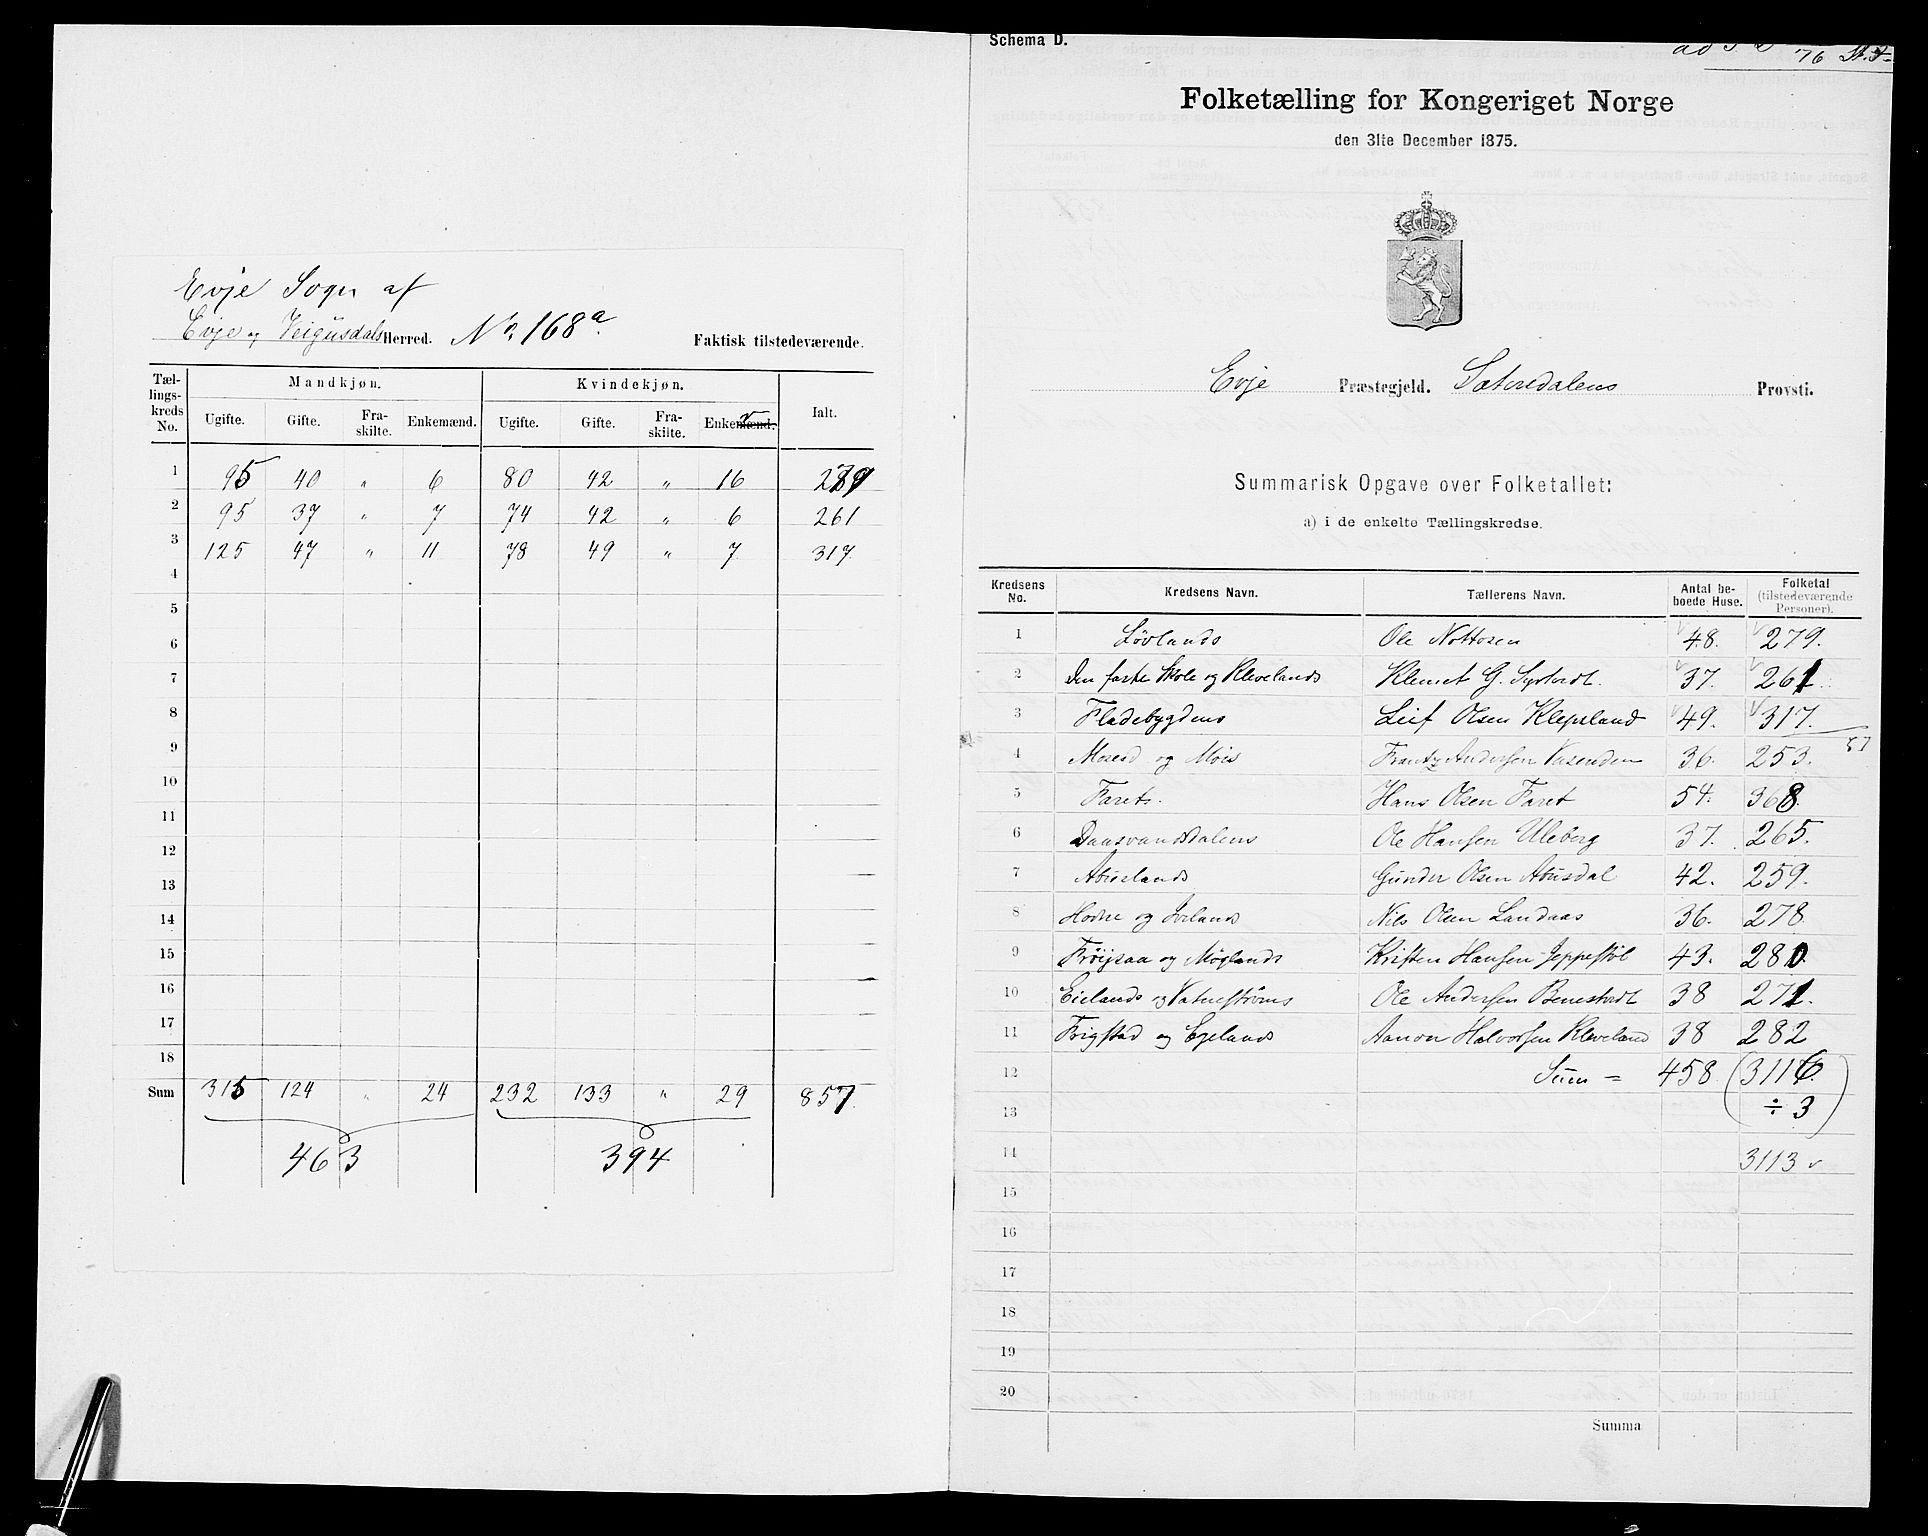 Evje Sogn af
Evje og Veigusdals Herred. No 168a. Faktisk tilstedeværende.
Tællingskreds No. Mandkjøn. Kvindekjøn. Ialt.
Ugifte. Gifte. Fraskilte. Enkemænd. Ugifte. Gifte. Fraskilte. Enkemænd.
1 95 40 " 6 80 42 " 16 279
2 95 37 " 7 74 42 " 6 261
3 125 47 " 11 78 49 " 7 317
4
5
6
7
8
9
10
11
12
13
14
15
16
17
18
Sum 315 124 " 24 232 133 " 29 857
463 394
Schema D.
76
Folketælling for Kongeriget Norge
den 31te December 1875.
Evje Præstegjeld. Sætersdalens Provsti.
Summarisk Opgave over Folketallet:
a) i de enkelte Tællingskredse.
Kredsens No. Kredsens Navn. Tællerens Navn. Antal beboede Huse. Folketal (tilstedeværende Personer).
1 Løvlands Ole Nottosen 48. 279.
2 Den faste Skole og Klevelands Klemet G. Syrtvedt. 37. 261.
3 Fladebygdens Leif Olsen Klepsland 49. 317.
4 Moseid og Mois Frantz Andersen Vasenden 36. 253.
5 Farets. Hans Olsen Faret 54. 368.
6 Daasvandsdalens Ole Hansen Uleberg 37. 265.
7 Abuslands Gunder Olsen Abusdal 42. 259.
8 Hodne og Ivelands Nils Olsen Landaas 36. 278
9 Frøysaa og Møglands Kristen Hansen Jeppestøl 43. 280.
10 Eielands og Vatnestrøms Ole Andersen Benestvedt 38 271.
11 Frigstad og Egelands Aanon Halvorsen Kleveland 38 282
12 Sum = 458 (3116.
13 ÷ 3)
14 3113 v
15
16
17
18
19
20
Summa